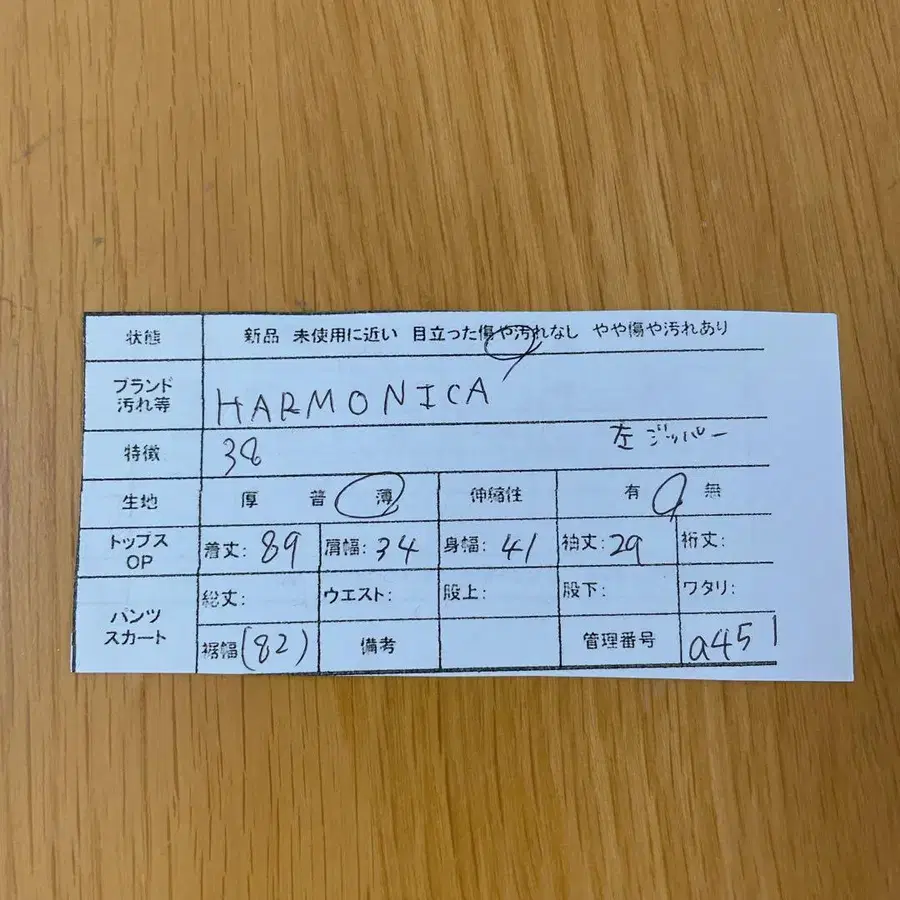 状態 新品 未使用に近い 目立った傷や汚れなし やや傷や汚れあり
ブランド
汚れ等 HARMONICA
特徴 38 左ジッパー
生地 厚 普 薄 伸縮性 有 無
トップス
OP 着丈: 89 肩幅: 34 身幅: 41 袖丈: 29 裄丈:
パンツ
スカート 総丈: ウエスト: 股上: 股下: ワタリ:
裾幅(82) 備考 管理番号 a451